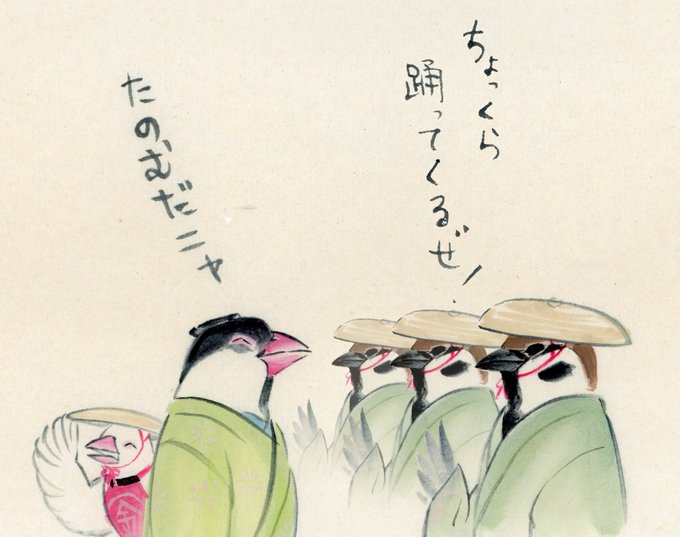 ちょっくら
踊ってくるぜ!
たのむだニャ
金